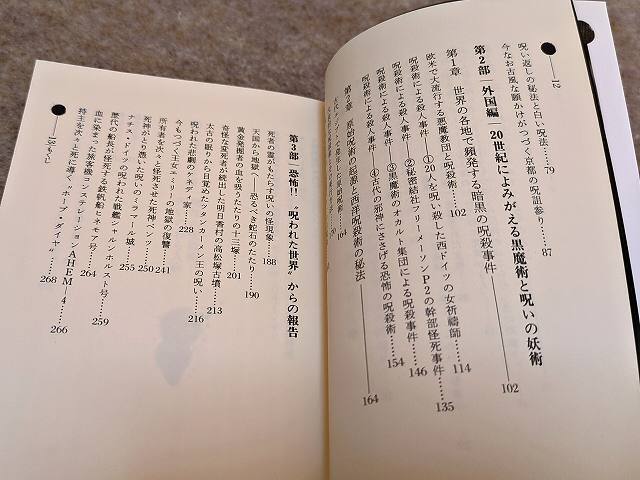 12
呪い返しの秘法と白い呪法……79
今なお古風な願かけがつづく京都の呪詛参り……87
第2部[外国編] 20世紀によみがえる黒魔術と呪いの妖術
第1章 世界の各地で頻発する暗黒の呪殺事件——102
欧米で大流行する悪魔教団と呪殺術……102
呪殺術による殺人事件 ①20人を呪い殺した西ドイツの女祈禱師……114
呪殺術による殺人事件 ②秘密結社フリーメーソンP2の幹部怪死事件……135
呪殺術による殺人事件 ③黒魔術のオカルト集団による呪殺事件……146
呪殺術による殺人事件 ④古代の邪神にささげる恐怖の呪殺術……154
第2章 原始呪術の起源と西洋呪殺術の秘法——164
164
第3部 恐怖!! “呪われた世界”からの報告
死者の霊がもたらす呪いの怪現象……188
天国から地獄——恐るべき蛇石のたたり……190
黄金発掘者の血を吸うたたりの十三塚……201
奇怪な変死者が続出した明日香村の高松塚古墳……213
太古の眠りから目覚めたツタンカーメン王の呪い……216
呪われた悲劇のケネディ家……228
今もつづく王女エミリーの地獄の復讐……241
所有者を次々と怪死させた死神ベンツ……250
死神がとり憑いた呪いのミラマール城……255
ナチス・ドイツの呪われた戦艦シャルンホルスト号……259
歴代の船長が怪死する鉄帆船ヒネモア号……264
血に染まった旅客機コンステレーションAHEM—4……266
持主を次々と死に導く“ホープ・ダイヤ”……268
13 もくじ